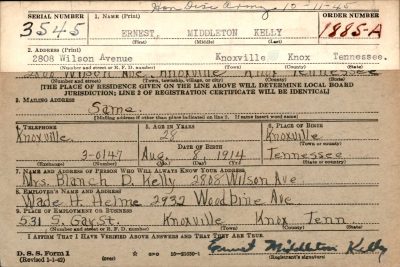 Hon Disc Army 10-11-45
SERIAL NUMBER 1. NAME (Print) ORDER NUMBER
3545 ERNEST, MIDDLETON KELLY 1885-A
(First) (Middle) (Last)
2. ADDRESS (Print)
2808 Wilson Avenue Knoxville Knox Tennessee.
2808 Wilson Ave. Knoxville Knox Tennessee
(Number and street or R. F. D. number) (Town, township, village, or city) (County) (State)
[THE PLACE OF RESIDENCE GIVEN ON THE LINE ABOVE WILL DETERMINE LOCAL BOARD
JURISDICTION; LINE 2 OF REGISTRATION CERTIFICATE WILL BE IDENTICAL]
3. MAILING ADDRESS
Same
[Mailing address if other than place indicated on line 2. If same insert word same]
4. TELEPHONE 5. AGE IN YEARS 6. PLACE OF BIRTH
Knoxville 28 Knoxville
DATE OF BIRTH (Town or county)
3-0147 Aug. 8 1914 Tennessee
(Exchange) (Number) (Mo.) (Day) (Yr.) (State or country)
7. NAME AND ADDRESS OF PERSON WHO WILL ALWAYS KNOW YOUR ADDRESS
Mrs. Blanch D. Kelly 2808 Wilson Ave
8. EMPLOYER'S NAME AND ADDRESS
Wade H. Helme 2932 Woodbine Ave
9. PLACE OF EMPLOYMENT OR BUSINESS
531 S. Gay St. Knoxville Knox Tenn
(Number and street or R. F. D. number) (Town) (County) (State)
I AFFIRM THAT I HAVE VERIFIED ABOVE ANSWERS AND THAT THEY ARE TRUE.
D. S. S. Form 1
(Revised 1-1-42) (over) Ernest Middleton Kelly